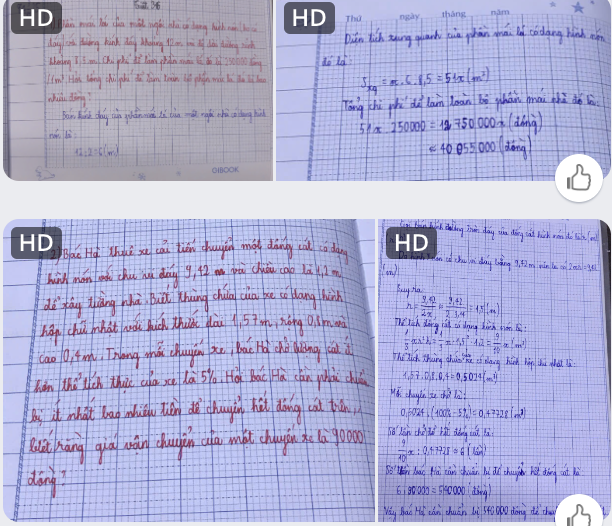 HD
phần mái lá của một ngôi nhà có dạng hình nón (không có
đáy) với đường kính đáy khoảng 12 m và độ dài đường sinh
khoảng 8,5 m. Chi phí để làm phần mái lá là 250000 đồng
/(m². Hỏi tổng chi phí để làm toàn bộ phần mái lá đó là bao
nhiêu đồng?
Bán kính đáy của phần mái lá của một ngôi nhà có dạng hình
nón là:
12:2=6(m)
HD
Thứ ngày tháng năm
Diện tích xung quanh của phần mái lá có dạng hình nón
đó là:
Sxq = π.6.8,5 = 51π(m²)
Tổng chi phí để làm toàn bộ phần mái nhà đó là:
51π.250000 = 12 750 000π (đồng)
≈ 40 055 000 (đồng)
HD
2) Bác Hà thuê xe cải tiến chuyển một đống cát có dạng
hình nón với chu vi đáy 9,42 m và chiều cao là 1,2 m
để xây tường nhà. Biết thùng chứa của xe có dạng hình
hộp chữ nhật với kích thước dài 1,57m, rộng 0,8m và
cao 0,4m. Trong mỗi chuyến xe, bác Hà chở lượng cát ít
hơn thể tích thực của xe là 5%. Hỏi bác Hà cần phải chuẩn
bị ít nhất bao nhiêu tiền để chuyển hết đống cát trên,
biết rằng giá vận chuyển của một chuyến xe là 90000
đồng?
HD
bán kính đường tròn đáy của đống cát hình nón đó là r(m)
hình nón có chu vi đáy bằng 9,42m nên ta có 2πr=9,42
(m)
Suy ra:
r = 9,42/2π ≈ 9,42/2.3,14 = 1,5(m)
Thể tích đống cát có dạng hình nón là:
1/3πr²h = 1/3π.1,5².1,2 = 9/10π(m³)
Thể tích thùng chứa của xe có dạng hình hộp chữ nhật là:
1,57.0,8.0,4 = 0,5024(m³)
Mỗi chuyến xe chở là:
0,5024.(100%-5%) = 0,47728(m³)
Số lần chở để hết đống cát là:
9/10π : 0,47728 ≈ 6 (lần)
Số tiền bác Hà cần chuẩn bị để chuyển hết đống cát là:
6.90000 = 540000 (đồng)
Vậy bác Hà cần chuẩn bị 540 000 đồng để